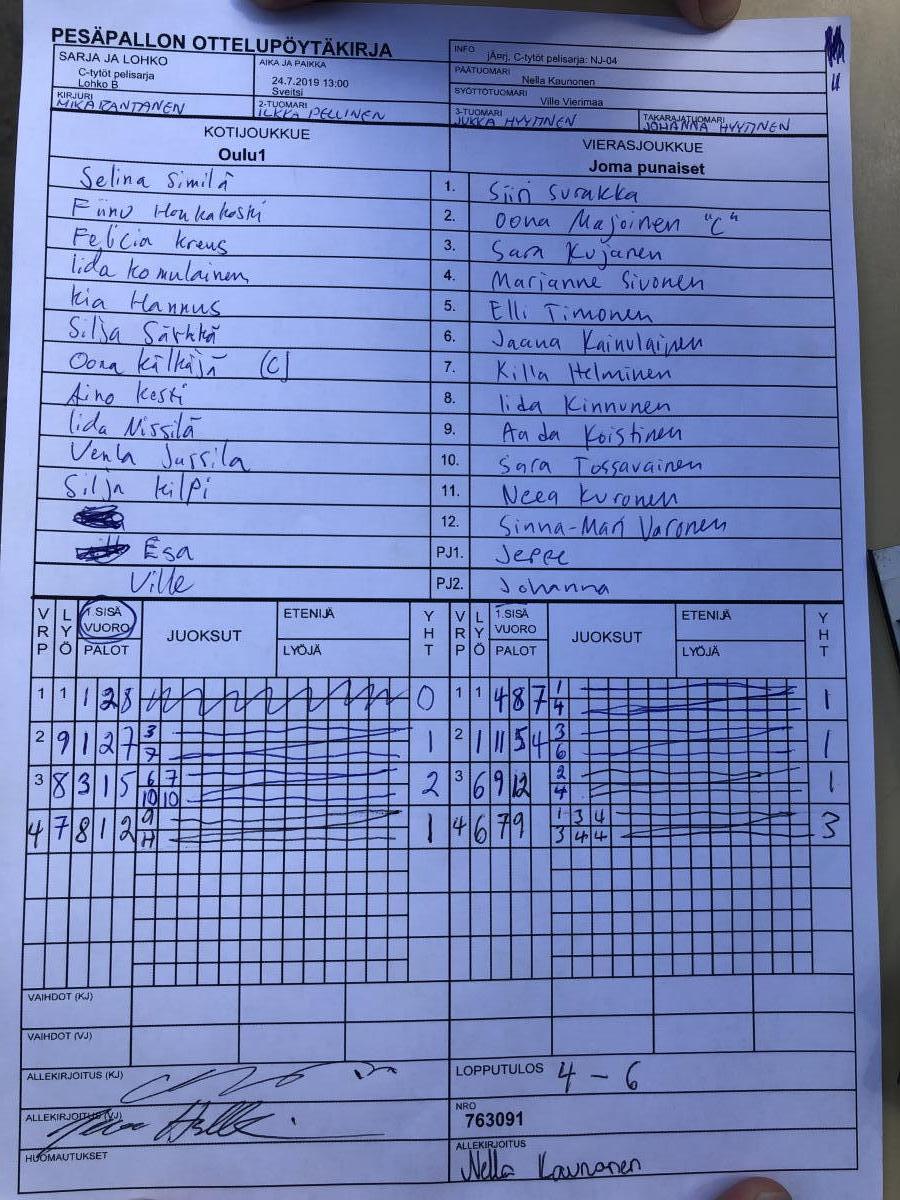 PESÄPALLON OTTELUPÖYTÄKIRJA
SARJA JA LOHKO
C-tytöt pelisarja
Lohko B
AIKA JA PAIKKA
24.7.2019 13:00
Sveitsi
INFO
jÄ¤rj. C-tytöt pelisarja: NJ-04
PÄÄTUOMARI
Nella Kaunonen
SYÖTTÖTUOMARI
Ville Vierimaa
KIRJURI
MIKA RANTANEN
2-TUOMARI
ILKKA PELLINEN
3-TUOMARI
JUKKA HYYTINEN
TAKARAJATUOMARI
JOHANNA HYYTINEN
KOTIJOUKKUE
Oulu1
VIERASJOUKKUE
Joma punaiset
Selina Similä 1. Siiri Surakka
Honkakoski 2. Oona Majoinen "C"
Felicia Kreus 3. Sara Kujanen
Iida Komulainen 4. Marjanne Sivonen
Kia Hannus 5. Elli Timonen
Silja Särkkä 6. Jaana Kainulainen
Oona Kälkäjä (C) 7. Killa Helminen
Aino Kesti 8. Iida Kinnunen
Iida Nissilä 9. Aada Koistinen
Venla Jussila 10. Sara Tossavainen
Silja Kilpi 11. Neea Kuronen
12. Sinna-Mari Varonen
Esa PJ1. Jeppe
Ville PJ2. Johanna
VRP LYÖ 1.SISÄ VUORO PALOT JUOKSUT ETENIJÄ LYÖJÄ YHT VRP LYÖ 1.SISÄ VUORO PALOT JUOKSUT ETENIJÄ LYÖJÄ YHT
1 1 1 2 8 0 1 1 4 8 7 1 1
4
2 9 1 2 7 3 1 2 1 11 5 4 3 1
7 6
3 8 3 1 5 6 7 2 3 6 9 12 2 1
10 10 4
4 7 8 1 2 9 1 4 6 7 9 1 3 4 3
11 3 4 4
VAIHDOT (KJ)
VAIHDOT (VJ)
ALLEKIRJOITUS (KJ)
LOPPUTULOS 4 - 6
ALLEKIRJOITUS (VJ)
NRO
763091
HUOMAUTUKSET
ALLEKIRJOITUS
Nella Kaunonen